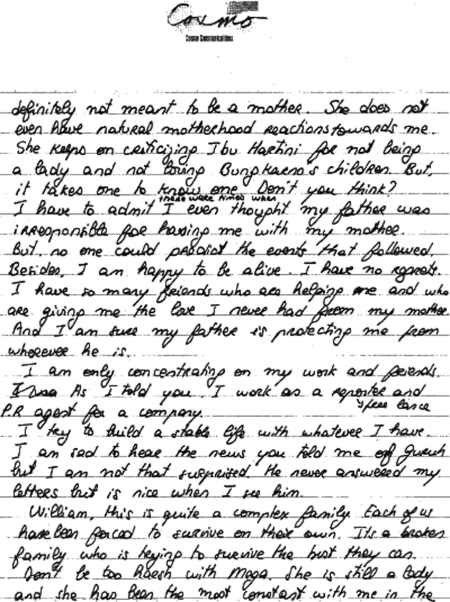 Cosmo
Cosmo Communications
definitely not meant to be a mother. She does not
even have natural motherhood reactions towards me.
She keeps on criticizing Ibu Hartini for not being
a lady and not loving Bung Karno's children. But,
it takes one to know one. Don't you think?
there were times when
I have to admit I even thought my father was
irresponsible for having me with my mother.
But, no one could predict the events that followed.
Besides, I am happy to be alive. I have no regrets.
I have so many friends who are helping me and who
are giving me the love I never had from my mother.
And I am sure my father is protecting me from
wherever he is.
I am only concentrating on my work and friends.
As I told you, I work as a reporter and
free lance
P.R agent for a company.
I try to build a stable life with whatever I have.
I am sad to hear the news you told me of Guruh
but I am not that surprised. He never answered my
letters but is nice when I see him.
William, this is quite a complex family. Each of us
have been forced to survive on their own. Its a broken
family who is trying to survive the best they can.
Don't be too harsh with Mega. She is still a lady
and she has been the most constant with me in the